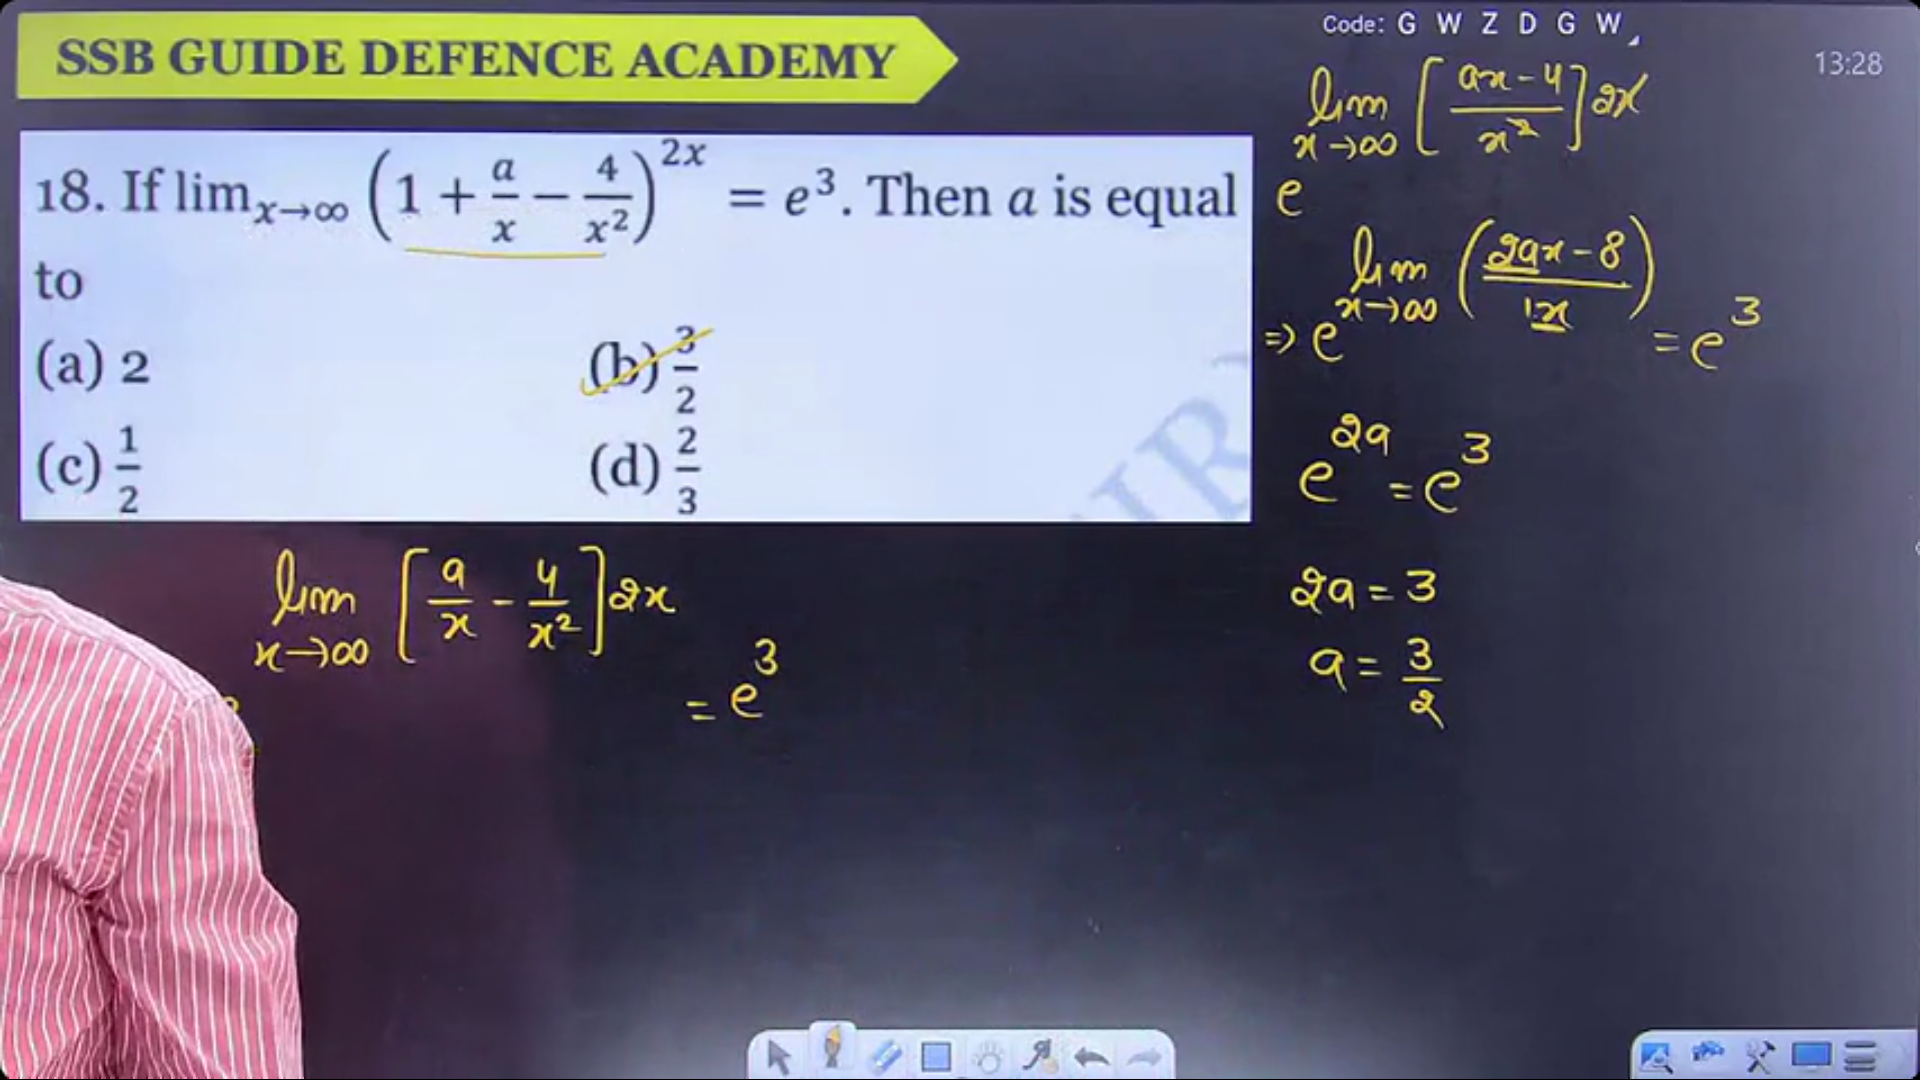 Code: G W Z D G W
SSB GUIDE DEFENCE ACADEMY
13:28
18. If lim x→∞ (1 + a/x − 4/x²)^2x = e³. Then a is equal
to
(a) 2
(b) 3/2
(c) 1/2
(d) 2/3
lim x→∞ [a/x - 4/x²] 2x
= e³
lim x→∞ [ax-4/x²] 2x
e
lim x→∞ (2ax-8/1x)
⇒ e = e³
e^2a = e³
2a = 3
a = 3/2